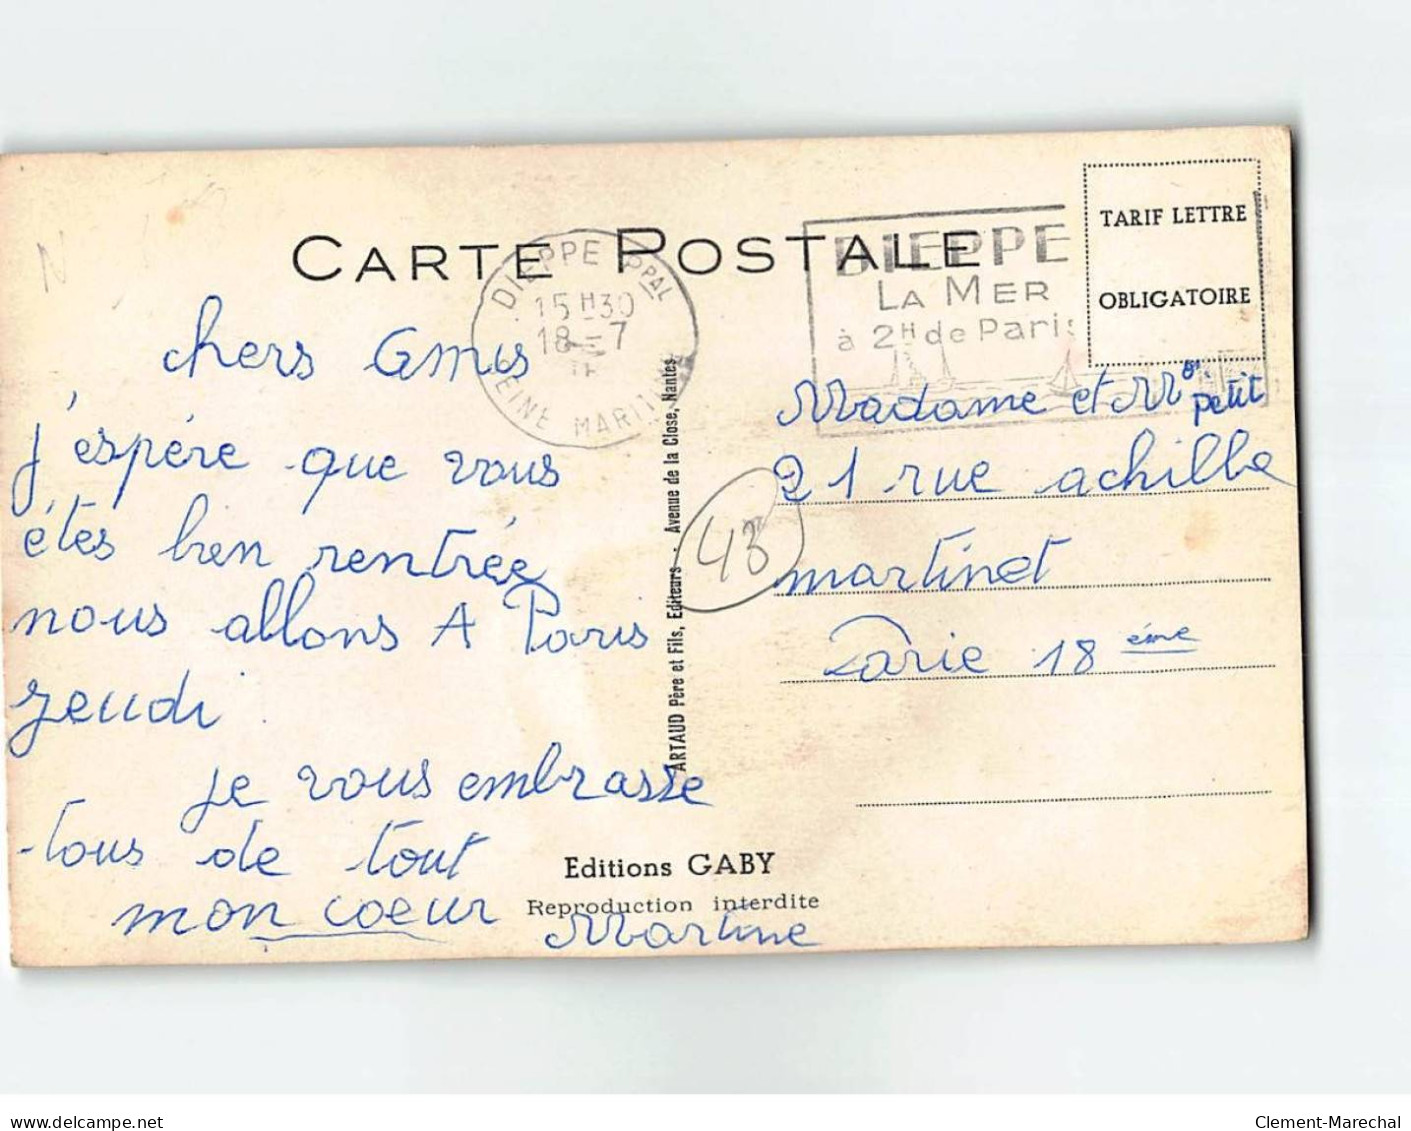 CARTE POSTALE
DIEPPE PPAL
15H30
18-7
SEINE MARITIME
DIEPPE
LA MER
à 2H de Paris
TARIF LETTRE
OBLIGATOIRE
chers Amis
j'espére que vous
étes bien rentrée
nous allons A Paris
jeudi
je vous embrasse
tous de tout
mon coeur
Martine
ARTAUD Père et Fils, Editeurs - Avenue de la Close, Nantes
43
Madame et Mr petit
21 rue achille
martinet
Parie 18 éme
Editions GABY
Reproduction interdite
www.delcampe.net
Clement-Marechal